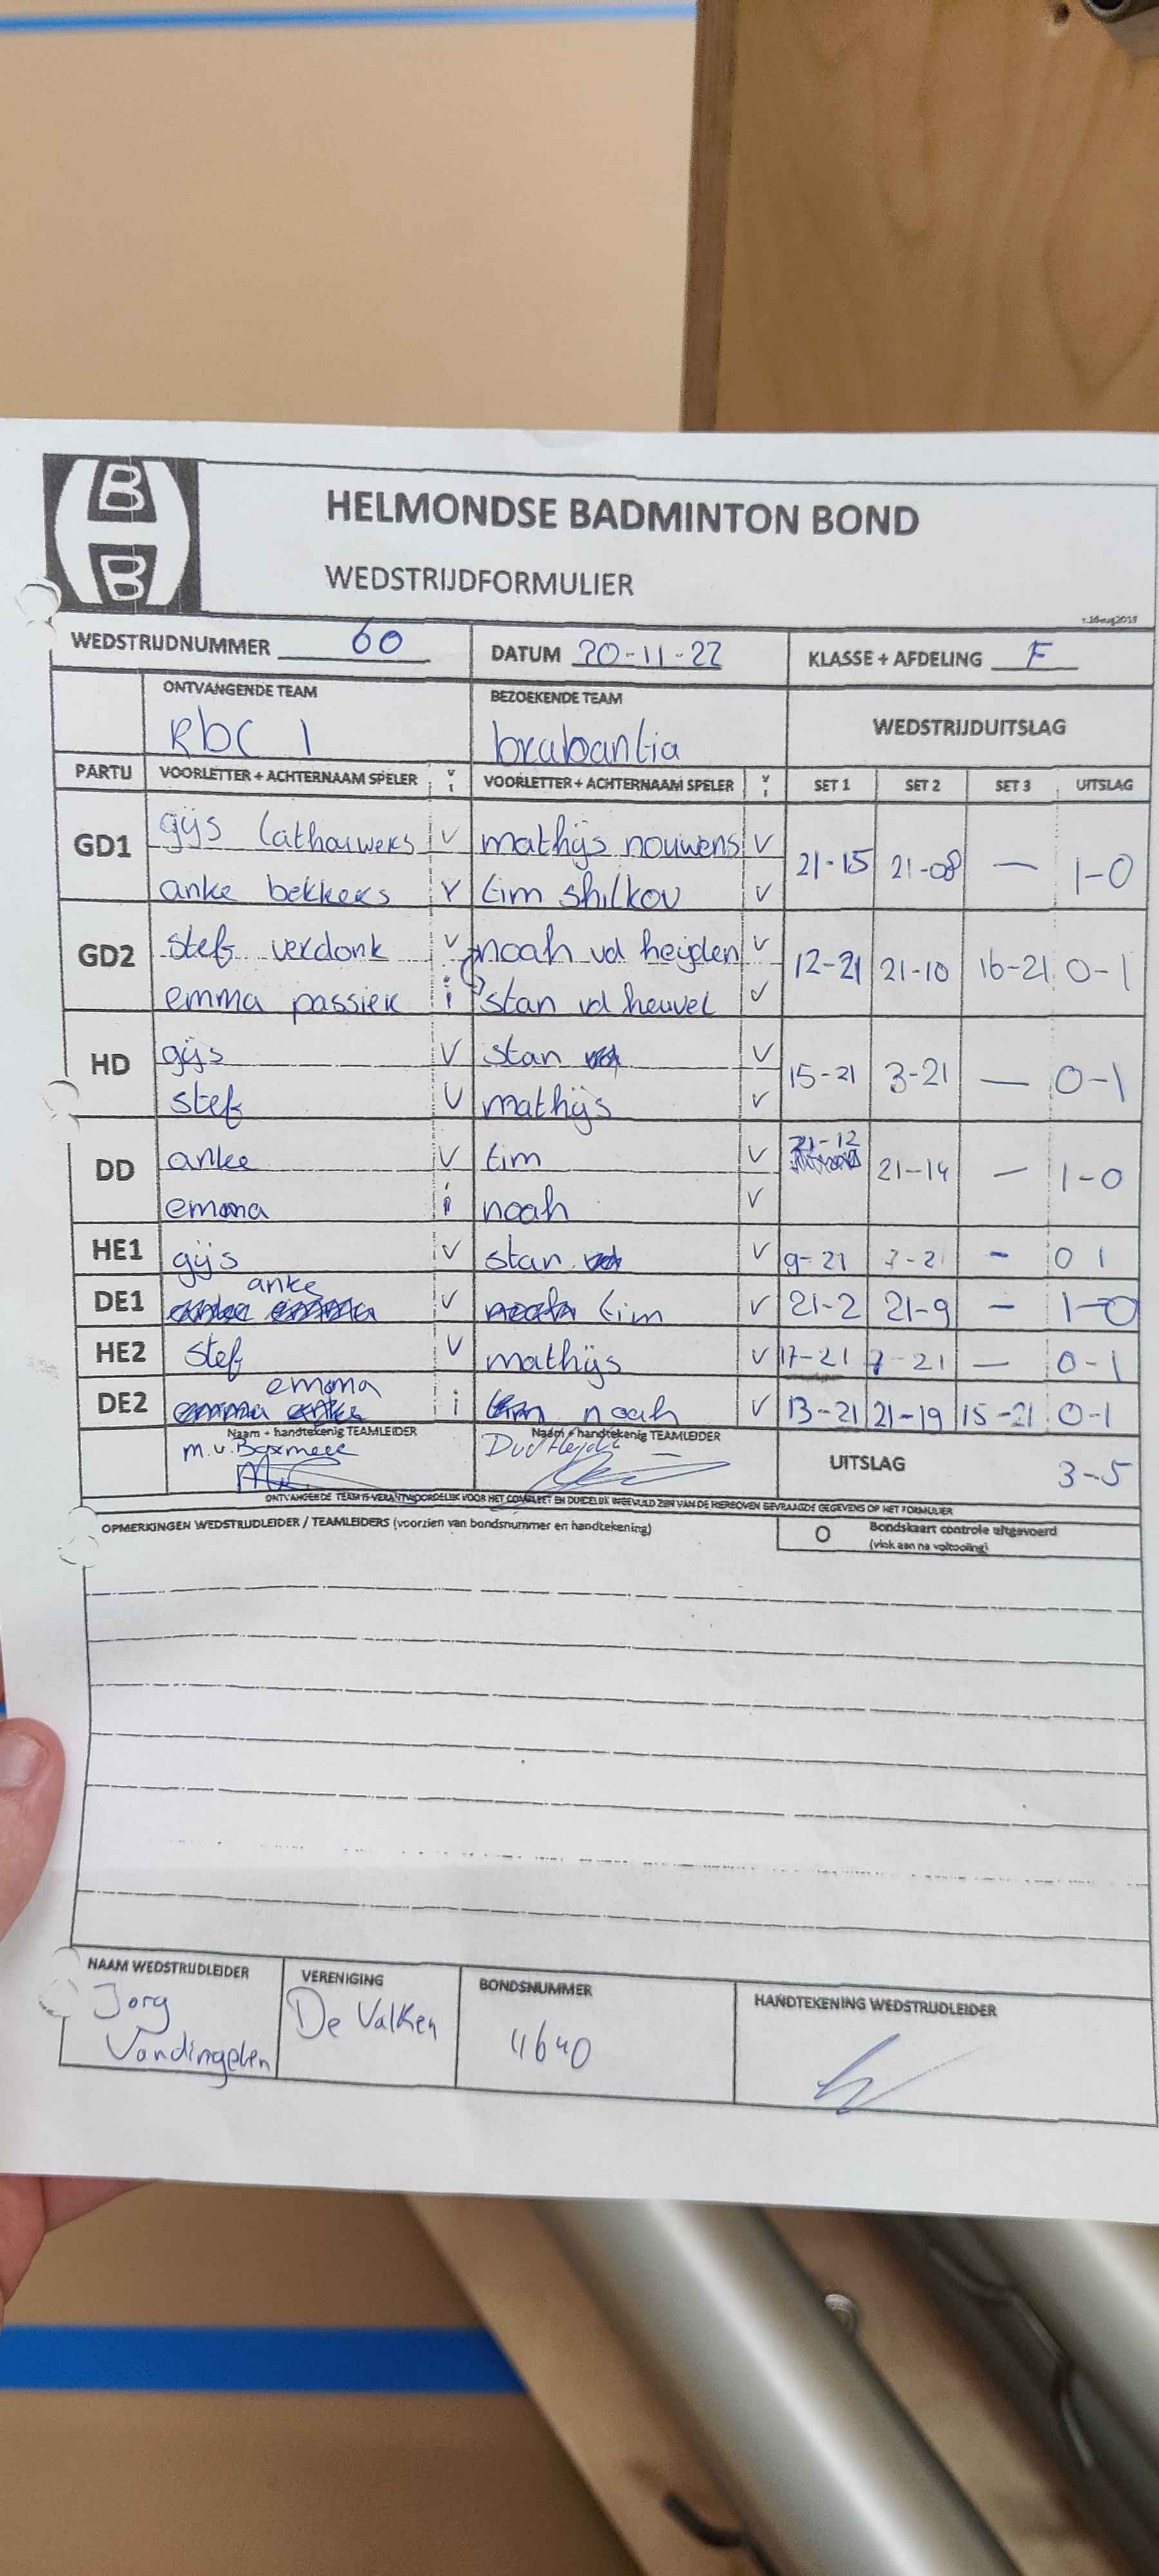 B
B
HELMONDSE BADMINTON BOND
WEDSTRIJDFORMULIER
WEDSTRIJDNUMMER 60 DATUM 20-11-22 KLASSE + AFDELING F
ONTVANGENDE TEAM BEZOEKENDE TEAM WEDSTRIJDUITSLAG
Rbc 1 brabantia
PARTIJ VOORLETTER + ACHTERNAAM SPELER V VOORLETTER + ACHTERNAAM SPELER V SET 1 SET 2 SET 3 UITSLAG
i i
GD1 gijs lathouwers V mathijs nouwens V 21-15 21-08 — 1-0
anke bekkers V tim shilkov V
GD2 stef verdonk V noah vd heijden V 12-21 21-10 16-21 0-1
emma passier i stan vd heuvel V
HD gijs V stan V 15-21 3-21 — 0-1
stef V mathijs V
DD anke V tim V 21-12 21-14 — 1-0
emma i noah V
HE1 gijs V stan V 9-21 7-21 - 0 1
DE1 anke V tim V 21-2 21-9 - 1-0
HE2 stef V mathijs V 17-21 7-21 — 0-1
DE2 emma i noah V 13-21 21-19 15-21 0-1
Naam + handtekenig TEAMLEIDER Naam + handtekenig TEAMLEIDER UITSLAG 3-5
M.v.Boxmeer
ONTVANGENDE TEAM IS VERANTWOORDELIJK VOOR HET COMPLEET EN DUIDELIJK INGEVULD ZIJN VAN DE HIERBOVEN GEVRAAGDE GEGEVENS OP HET FORMULIER
OPMERKINGEN WEDSTRIJDLEIDER / TEAMLEIDERS (voorzien van bondsnummer en handtekening)
O Bondskaart controle uitgevoerd
(vink aan na voltooiing)
NAAM WEDSTRIJDLEIDER VERENIGING BONDSNUMMER HANDTEKENING WEDSTRIJDLEIDER
Jorg De Valken 4640